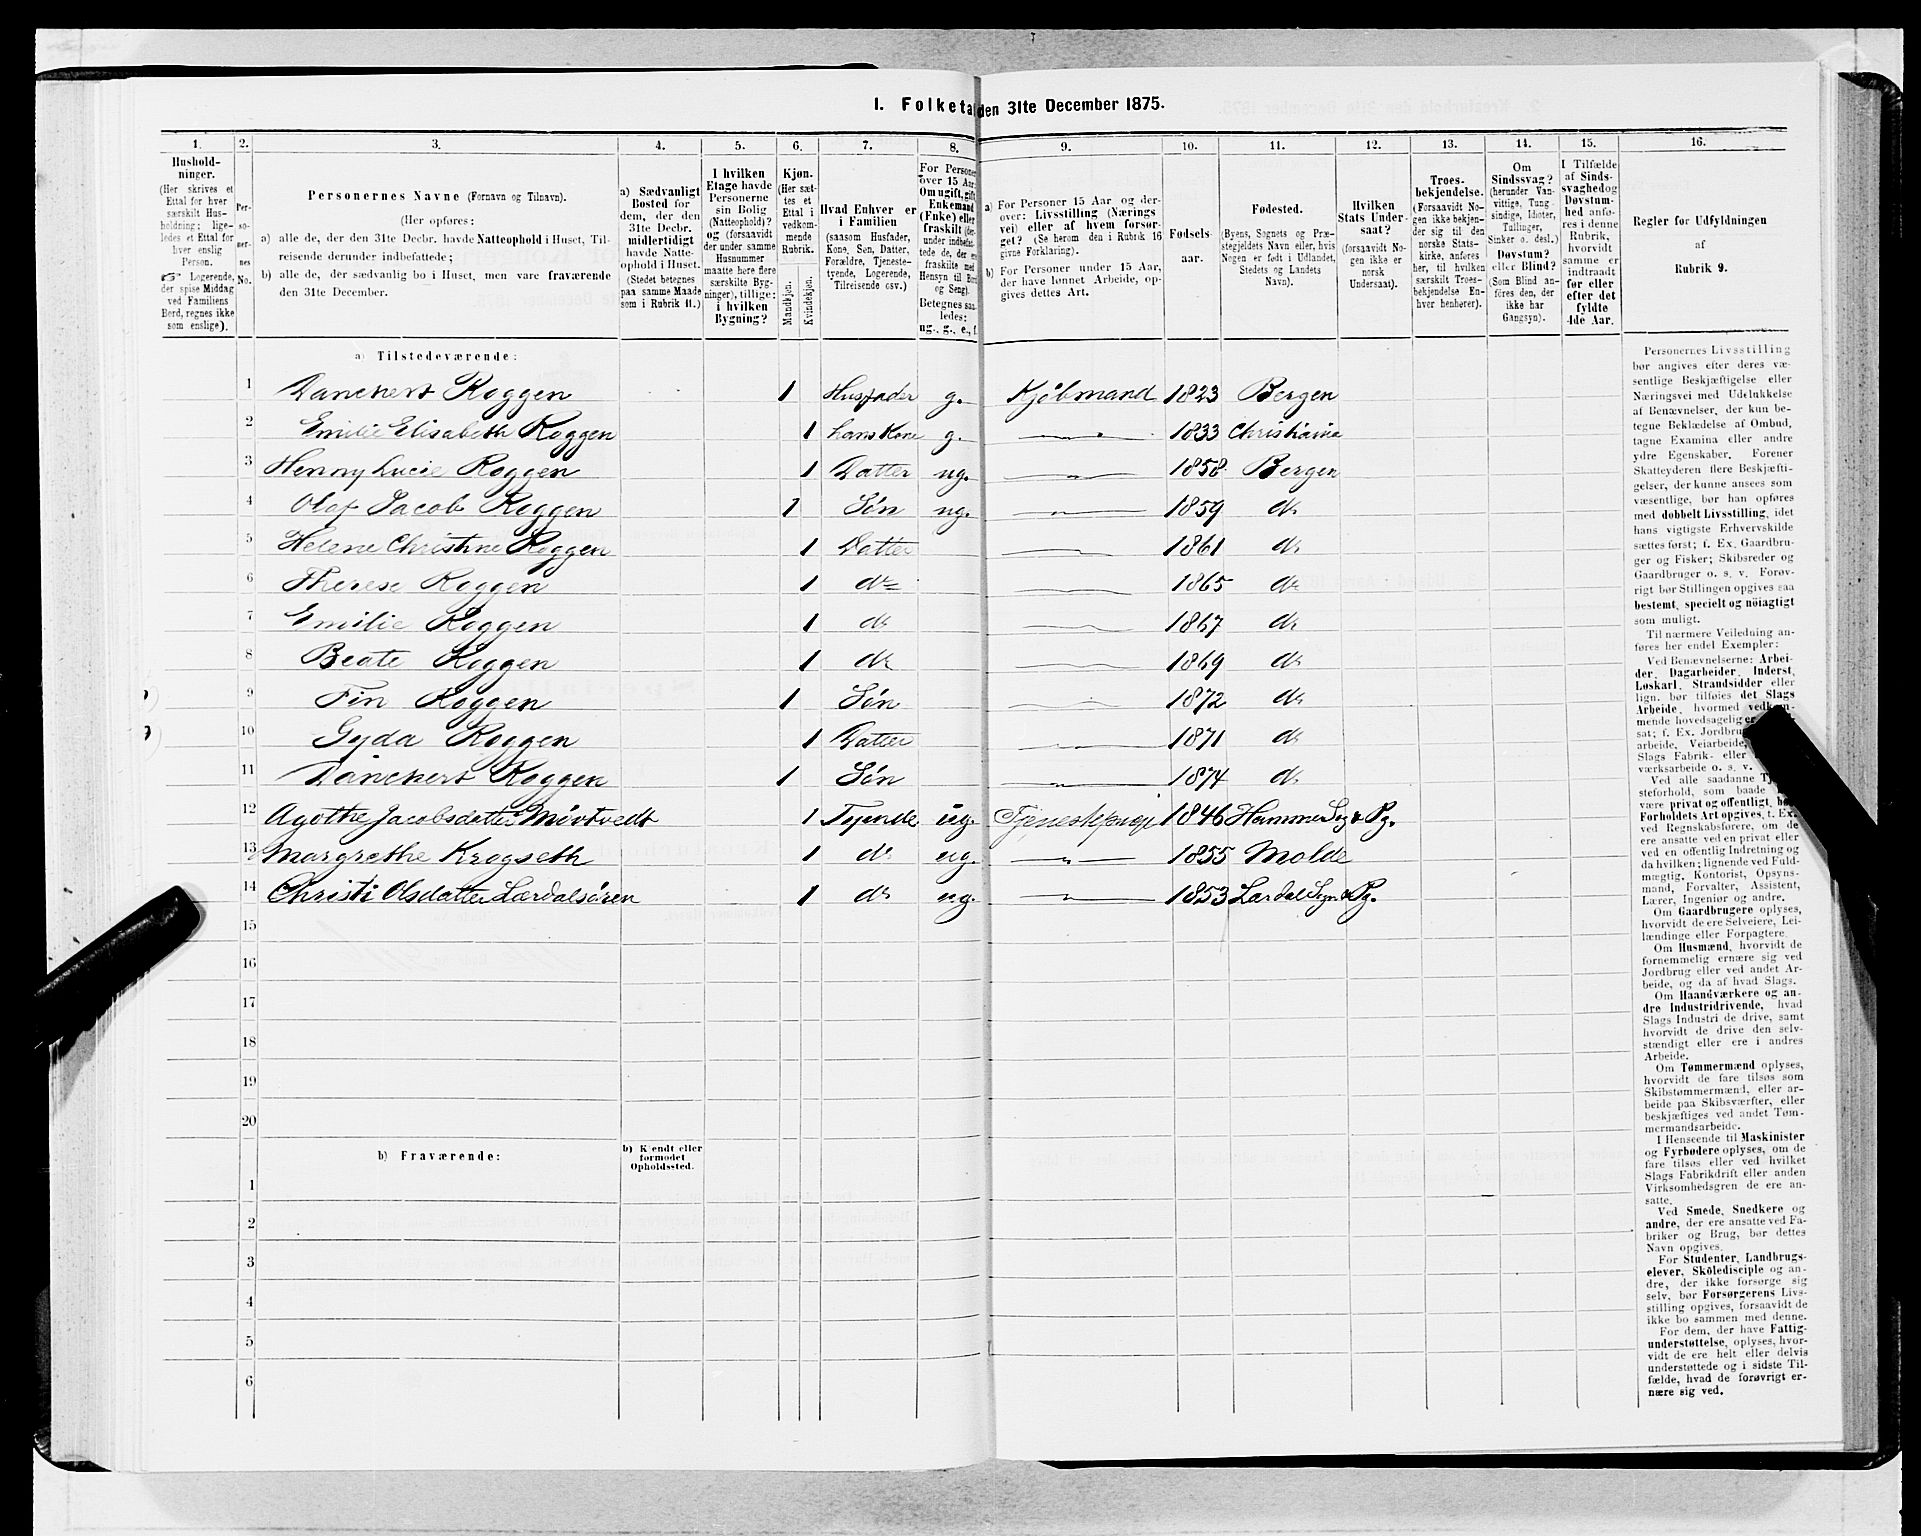 1. Folketal den 31te December 1875.
1. 2. 3. 4. 5. 6. 7. 8. 9. 10. 11. 12. 13. 14. 15. 16.
Hushold-
ninger.
(Her skrives et
Ettal for hver
særskilt Hus-
holdning; lige-
ledes et Ettal for
hver enslig
Person.
☞ Logerende,
der spise Middag
ved Familiens
Bord, regnes ikke
som enslige).
Per-
so-
ner-
nes
No.
Personernes Navne (Fornavn og Tilnavn).
(Her opføres:
a) alle de, der den 31te Decbr. havde Natteophold i Huset, Til-
reisende derunder indbefattede;
b) alle de, der sædvanlig bo i Huset, men vare fraværende
den 31te December.
a) Sædvanligt
Bosted for
dem, der den
31te Decbr.
midlertidigt
havde Natte-
ophold i Huset.
(Stedet betegnes
paa samme Maade
som i Rubrik 11.)
I hvilken
Etage havde
Personerne
sin Bolig
(Natteophold)?
og (forsaavidt
der under samme
Husnummer
maatte høre flere
særskilte Byg-
ninger), tillige:
i hvilken
Bygning?
Kjøn.
(Her sæt-
tes et
Ettal i
vedkom-
mende
Rubrik.
Mandkjøn.
Kvindekjøn.
Hvad Enhver er
i Familien
(saasom Husfader,
Kone, Søn, Datter,
Forældre, Tjeneste-
tyende, Logerende,
Tilreisende osv.)
For Personer
over 15 Aar:
Om ugift, gift,
Enkemand
(Enke) eller
fraskilt
Betegnes saa-
ledes:
ug., g., e., f.
a) For Personer 15 Aar og der-
over: Livsstilling (Nærings
vei) eller af hvem forsør-
get? (Se herom den i Rubrik 16
givne Forklaring).
b) For Personer under 15 Aar,
der have lønnet Arbeide, op-
gives dettes Art.
Fødsels-
aar.
Fødested.
(Byens, Sognets og Præ-
stegjeldets Navn eller, hvis
Nogen er født i Udlandet,
Stedets og Landets
Navn).
Hvilken
Stats Under-
saat?
(forsaavidt No-
gen ikke er
norsk
Undersaat).
Troes-
bekjendelse.
(Forsaavidt No-
gen ikke bekjen-
der sig til den
norske Stats-
kirke, anføres
her, til hvilken
særskilt Troes-
bekjendelse En-
hver henhører).
Om
Sindssvag?
(herunder Van-
vittige, Tung
sindige, Idioter,
Tullinger,
Sinker o. desl.)
Døvstum?
eller Blind?
(Som Blind an-
føres den, der
ikke har
Gangsyn).
I Tilfælde
af Sinds-
svaghed og
Døvstum-
hed anfø-
res i denne
Rubrik,
hvorvidt
samme er
indtraadt
før eller
efter det
fyldte
4de Aar.
Regler for Udfyldningen
af
Rubrik 9.
a) Tilstedeværende:
1 Danckert Roggen 1 Husfader g. Kjøbmand 1823 Bergen
2 Emilie Elisabeth Roggen 1 hans Kone g. —〃— 1833 Christiania
3 Henny Lucie Roggen 1 Datter ug. —〃— 1858 Bergen
4 Olaf Jacob Roggen 1 Søn ug. —〃— 1859 do
5 Helene Christine Roggen 1 Datter —〃— 1861 do
6 Therese Roggen 1 do —〃— 1865 do
7 Emilie Roggen 1 do —〃— 1867 do
8 Beate Roggen 1 do —〃— 1869 do
9 Fin Roggen 1 Søn —〃— 1872 do
10 Gyda Roggen 1 Datter —〃— 1871 do
11 Danckert Roggen 1 Søn —〃— 1874 do
12 Agothe Jacobsdatter Mörtvedt 1 Tyende ug. Tjenestepige 1846 Hammer Sog & Pg.
13 Margrethe Krogseth 1 do ug. —〃— 1855 Molde
14 Christi Olsdatter Lærdalsören 1 do ug. —〃— 1853 Lærdal Sogn & Pg.
15
16
17
18
19
20
b) Fraværende: b) Kjendt eller
formodet
Opholdssted.
1
2
3
4
5
6
Personernes Livsstilling
bør angives efter deres væ-
sentlige Beskjæftigelse eller
Næringsvei med Udelukkelse
af Benævnelser, der kun be-
tegne Beklædelse af Ombud,
tagne Examina eller andre
ydre Egenskaber. Forener
Skatteyderen flere Beskjæfti-
gelser, der kunne ansees som
væsentlige, bør han opføres
med dobbelt Livsstilling, idet
hans vigtigste Erhvervskilde
sættes først; f. Ex. Gaardbru-
ger og Fisker; Skibsreder og
Gaardbruger o. s. v. Forøv-
rigt bør Stillingen opgives saa
bestemt, specielt og nöiagtigt
som muligt.
Til nærmere Veiledning an-
føres her endel Exempler:
Ved Benævnelserne: Arbei-
der, Dagarbeider, Inderst,
Løskarl, Strandsidder eller
lign. bør tilføies det Slags
Arbeide, hvormed vedkom-
mende hovedsagelig er
sat; f. Ex. Jordbru
arbeide, Veiarbeide,
Slags Fabrik- eller
værksarbeide o. s. v.
Ved alle saadanne Tje
steforhold, som baade
være privat og offentligt, bør
Forholdets Art opgives, t. Ex.
ved Regnskabsførere, om de
ere ansatte ved en privat eller
ved en offentlig Indretning og
da hvilken; lignende ved Fuld-
mægtig, Kontorist, Opsyns-
mand, Forvalter, Assistent,
Lærer, Ingeniør og andre.
Om Gaardbrugere oplyses,
hvorvidt de ere Selveiere, Lei-
lændinge eller Forpagtere.
Om Husmænd, hvorvidt de
fornemmelig ernære sig ved
Jordbrug eller ved andet Ar-
beide, og da af hvad Slags.
Om Haandværkere og an-
dre Industridrivende, hvad
Slags Industri de drive, samt
hvorvidt de drive den selv-
stændigt eller ere i andres
Arbeide.
Om Tømmermænd oplyses,
hvorvidt de fare tilsøs som
Skibstømmermænd, eller ar-
beide paa Skibsværfter, eller
beskjæftiges ved andet Tøm-
mermandsarbeide.
I Henseende til Maskinister
og Fyrbødere oplyses, om de
fare tilsøs eller ved hvilket
Slags Fabrikdrift eller anden
Virksomhedsgren de ere an-
satte.
Ved Smede, Snedkere og
andre, der ere ansatte ved Fa-
briker og Brug, bør dettes
Navn opgives.
For Studenter, Landbrugs-
elever, Skoledisciple og an-
dre, der ikke forsørge sig
selv, bør Forsørgerens Livs-
stilling opgives, forsaavidt de
ikke bo sammen med denne.
For dem, der have Fattig-
understøttelse, oplyses, hvor-
vidt de ere helt eller delvis
understøttede og i sidste Til-
fælde, hvad de forøvrigt er-
nære sig ved.